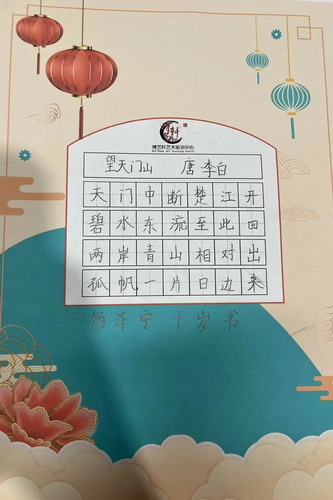 博艺轩艺术培训中心
望天门山 唐 李白
天门中断楚江开
碧水东流至此回
两岸青山相对出
孤帆一片日边来
杨泽宁 十岁 书